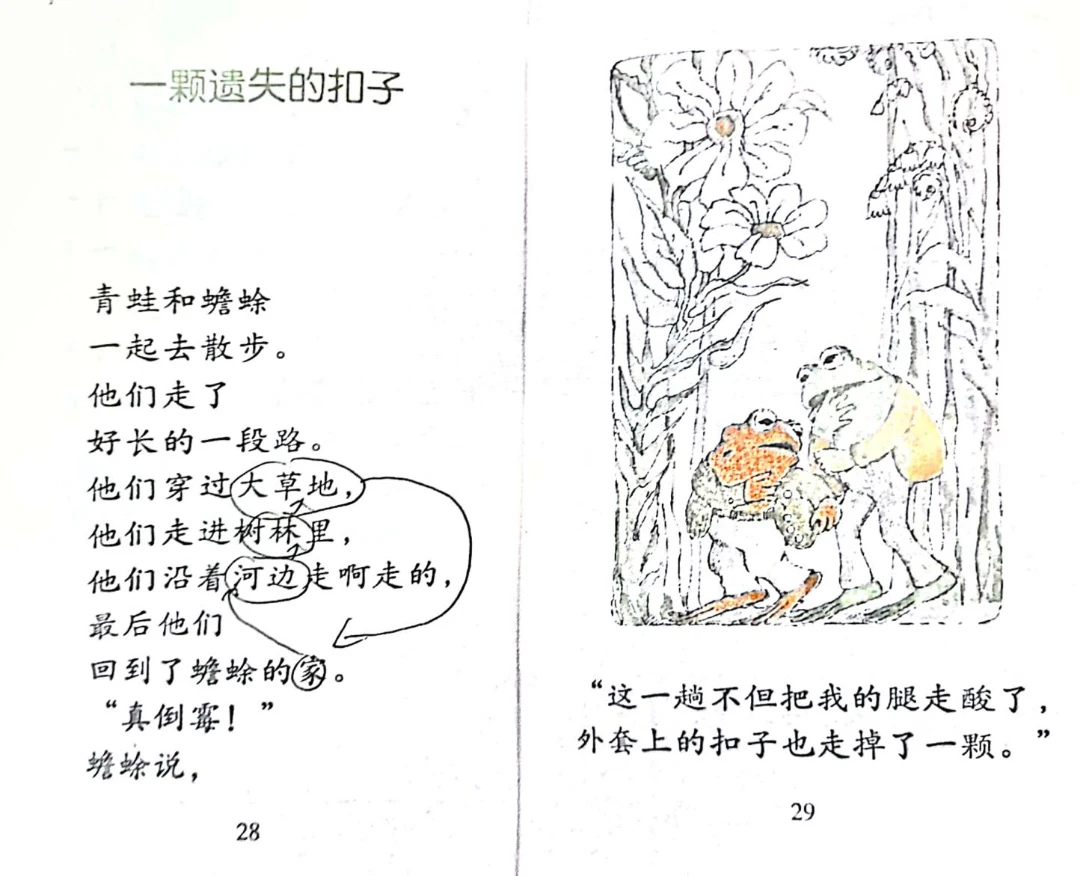 一颗遗失的扣子
青蛙和蟾蜍
一起去散步。
他们走了
好长的一段路。
他们穿过大草地，
他们走进树林里，
他们沿着河边走啊走的，
最后他们
回到了蟾蜍的家。
“真倒霉！”
蟾蜍说，
28
“这一趟不但把我的腿走酸了，
外套上的扣子也走掉了一颗。”
29